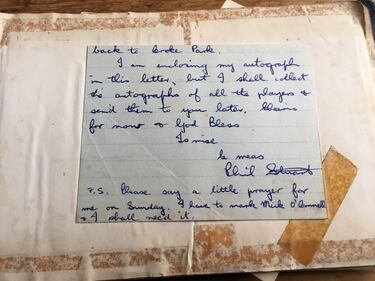 back to Croke Park.
I am enclosing my autograph
in this letter, but I shall collect
the autographs of all the players &
send them to you later. Cheerio
for now & God Bless
Is mise
le meas
Phil Stuart
P.S. Please say a little prayer for
me on Sunday. I have to mark Mick O'Connell
& I shall need it.